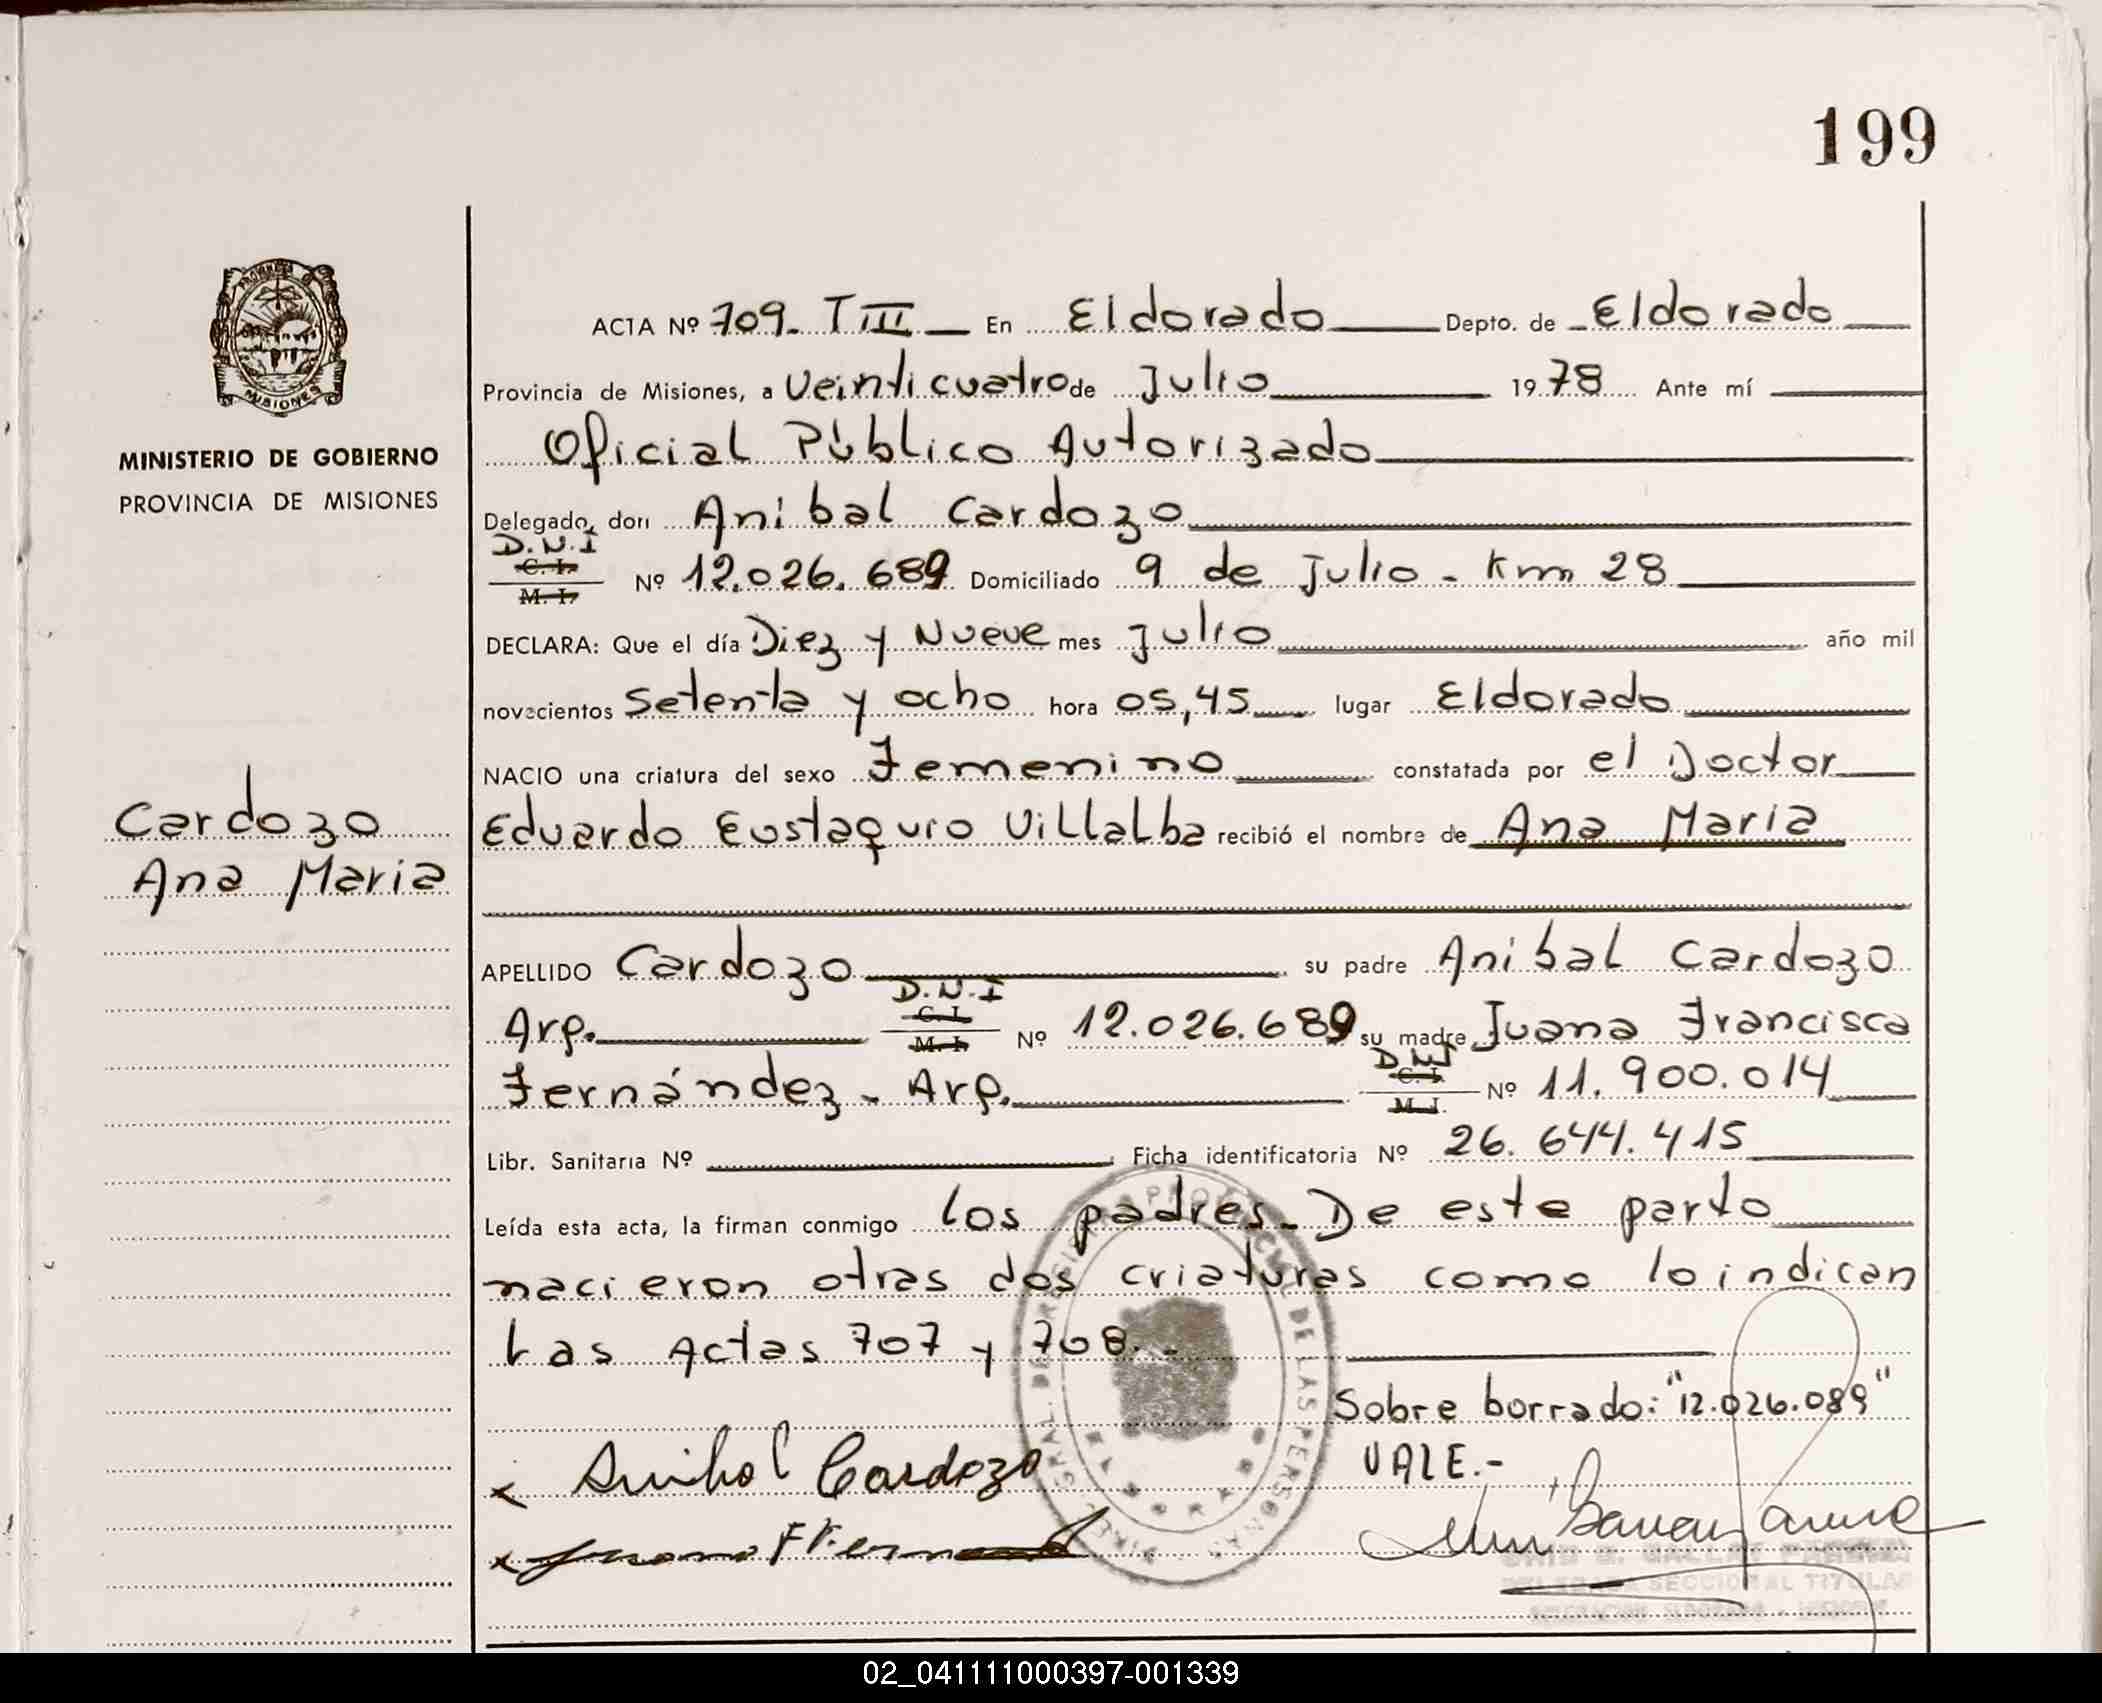 199
PROVINCIA DE
MISIONES
MINISTERIO DE GOBIERNO
PROVINCIA DE MISIONES
Cardozo
Ana Maria
ACTA Nº 709 - T III En Eldorado Depto. de Eldorado
Provincia de Misiones, a Veinticuatro de Julio 1978 Ante mí
Oficial Público Autorizado
Delegado, don Anibal Cardozo
D.N.I
C. I.
M. I. Nº 12.026.689 Domiciliado 9 de Julio - Km 28
DECLARA: Que el día Diez y Nueve mes Julio año mil
novecientos Setenta y ocho hora 05,45 lugar Eldorado
NACIO una criatura del sexo Femenino constatada por el Doctor
Eduardo Eustaquio Villalba recibió el nombre de Ana Maria
APELLIDO Cardozo su padre Anibal Cardozo
D.N.I
C. I.
Arg. M. I. Nº 12.026.689 su madre Juana Francisca
D.N.I
C. I.
Fernández - Arg. M. I. Nº 11.900.014
Libr. Sanitaria Nº Ficha identificatoria Nº 26.644.415
Leída esta acta, la firman conmigo los padres - De este parto
nacieron otras dos criaturas como lo indican
las Actas 707 y 708. -
Sobre borrado: "12.026.089"
VALE.-
x Anibal Cardozo
x Juana F Fernand
DELEGADA SECCIONAL TITULAR
02_041111000397-001339